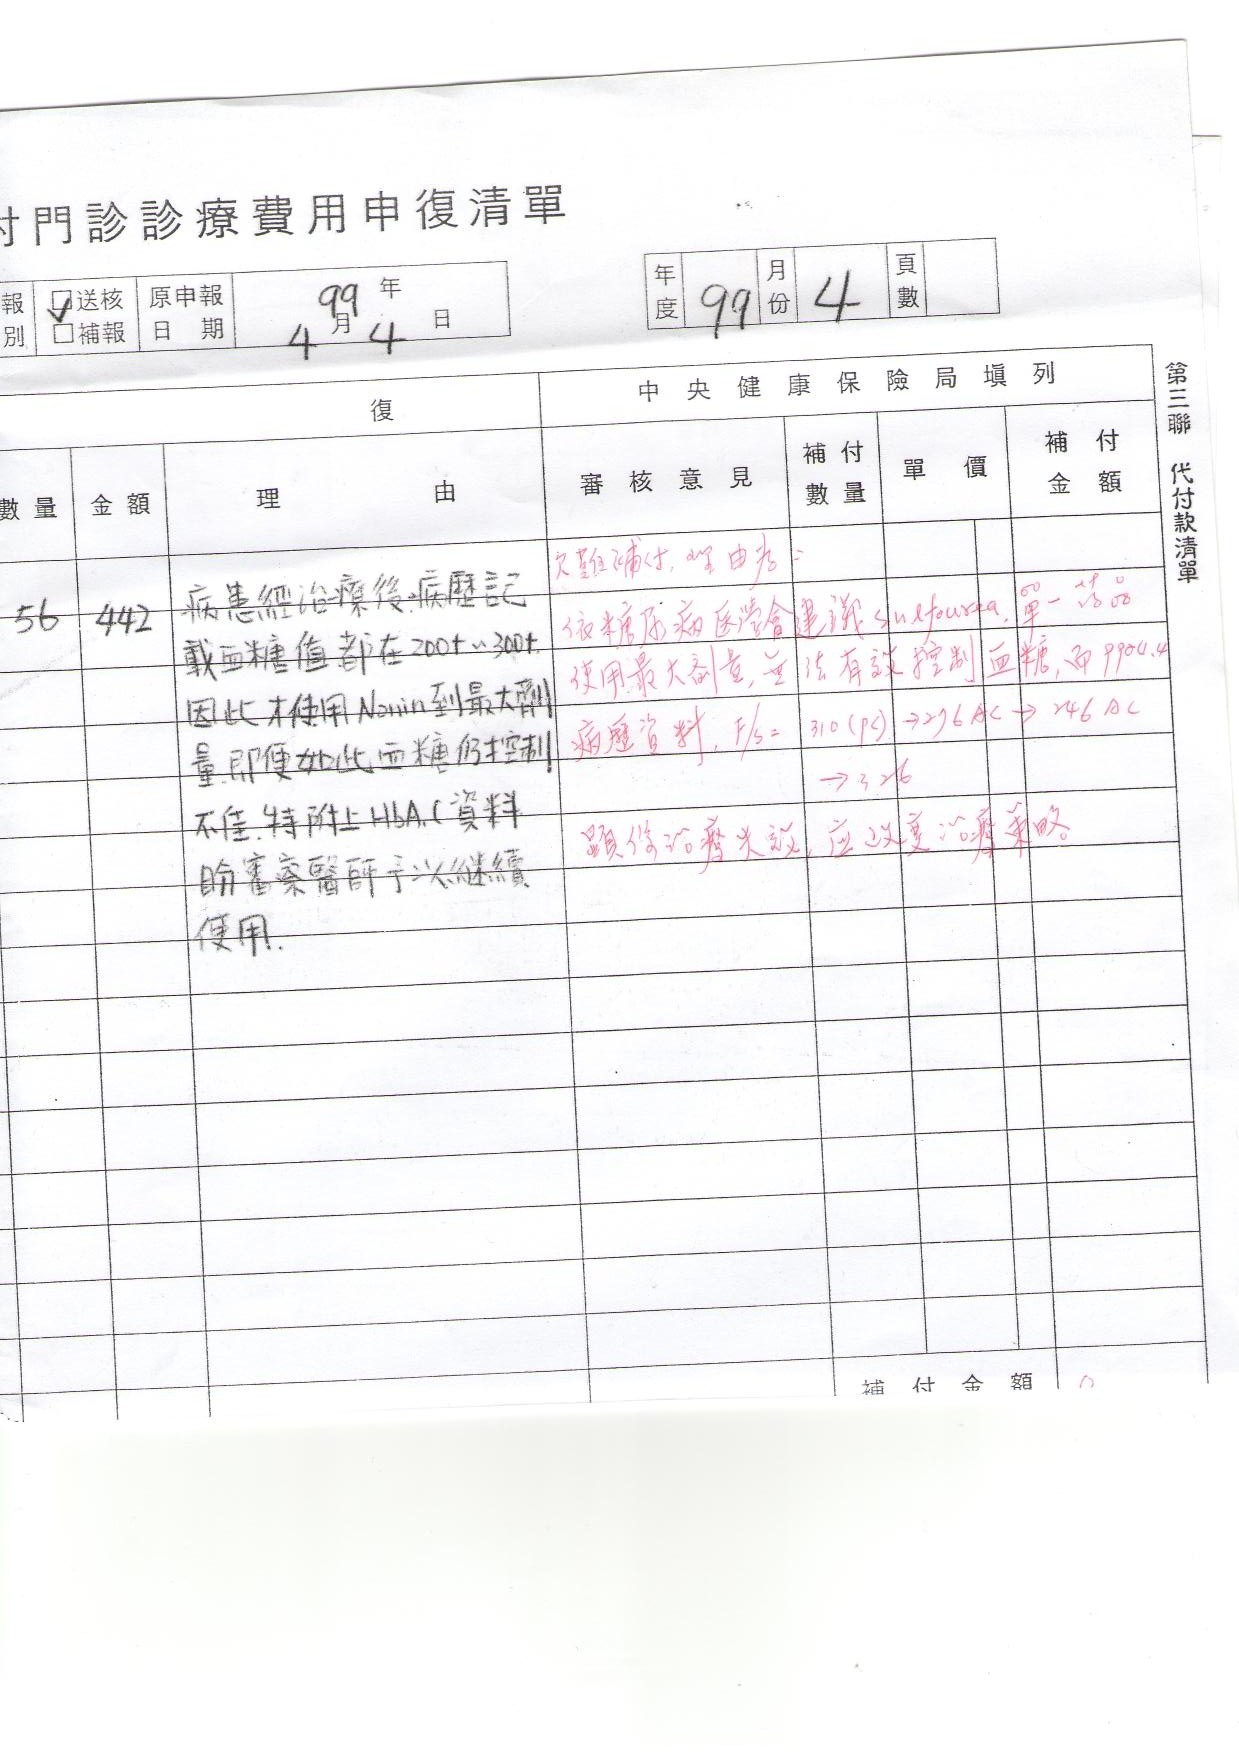 付門診診療費用申復清單
報別 ☑送核 □補報 原申報日期 99年4月4日
年度 99 月份 4 頁數
復 中央健康保險局填列
數量 金額 理由 審核意見 補付數量 單價 補付金額
第三聯 代付款清單
56 442
病患經治療後,病歷記
載血糖值都在200+~300+.
因此才使用Nonin到最大劑
量.即便如此血糖仍控制
不佳.特附上HbA1C資料
盼審察醫師予以繼續
使用.
欠難補付,理由為:
依糖尿病医學會建議sulfourea,單一
使用最大劑量,無法有效控制血糖,而9904.4
病歷資料,F/s= 310(pc)→276 AC→246 AC
→326
顯係治療失效,应改變治療策略
補付金額 0